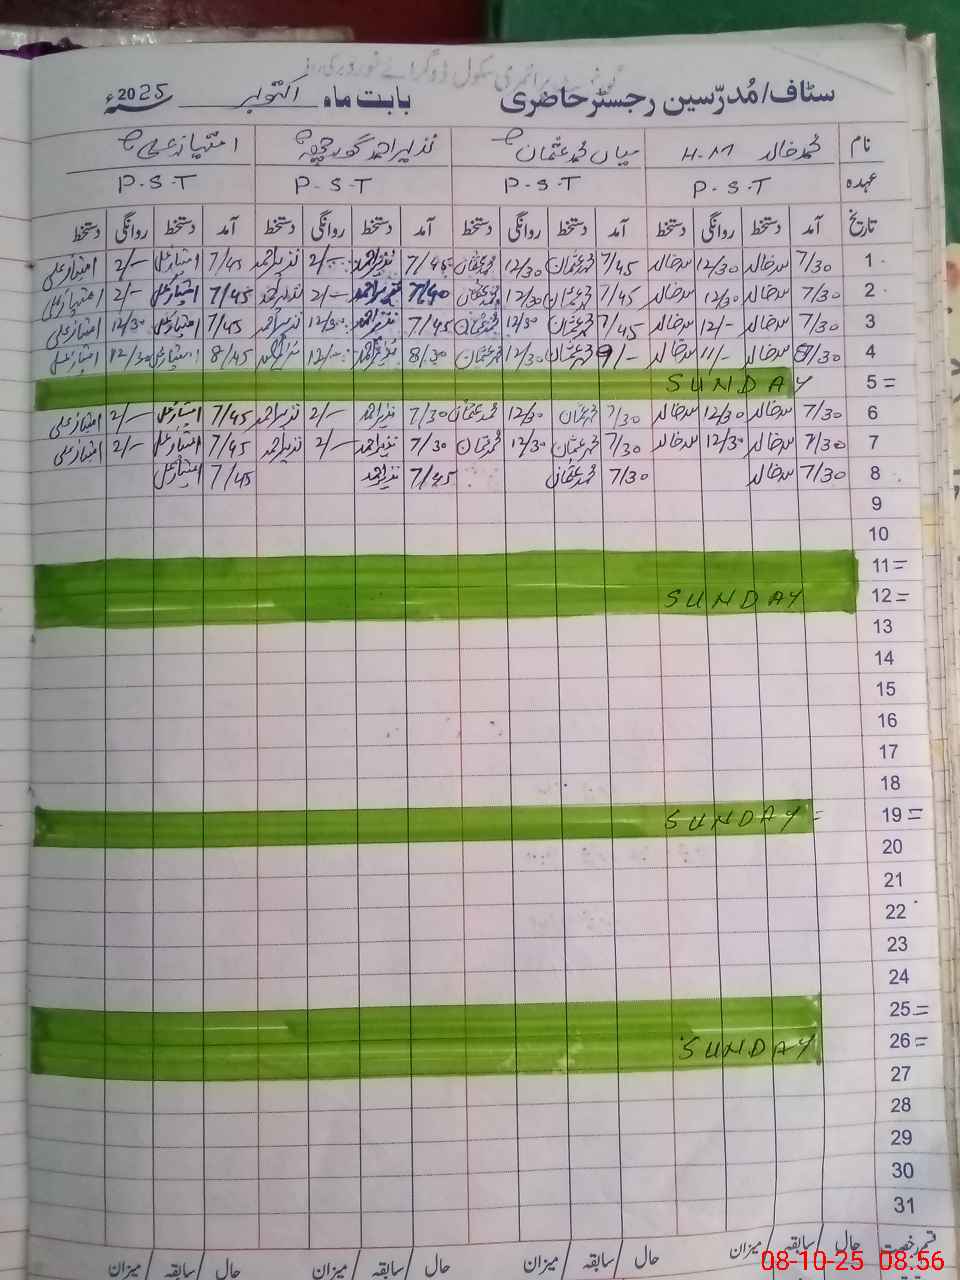 سٹاف/مُدرّسین رجسٹر حاضری بابت ماہ اکتوبر سنہ 2025ء
نام محمد خالد H.M میاں محمد عثمان نذیر احمد امتیاز علی
عہدہ P.S.T P.S.T P.S.T P.S.T
تاریخ آمد دستخط روانگی دستخط آمد دستخط روانگی دستخط آمد دستخط روانگی دستخط آمد دستخط روانگی دستخط
1 7/30 خالد 12/30 خالد 7/45 محمد عثمان 12/30 محمد عثمان 7/45 نذیر احمد 2/- نذیر احمد 7/45 امتیاز علی 2/- امتیاز علی
2 7/30 خالد 12/30 خالد 7/45 محمد عثمان 12/30 محمد عثمان 7/40 نذیر احمد 2/- نذیر احمد 7/45 امتیاز علی 2/- امتیاز علی
3 7/30 خالد 12/- خالد 7/45 محمد عثمان 12/30 محمد عثمان 7/45 نذیر احمد 12/30 نذیر احمد 7/45 امتیاز علی 12/30 امتیاز علی
4 خالد 11/- خالد 9/- محمد عثمان 12/30 محمد عثمان 8/30 نذیر احمد 12/- نذیر احمد 8/45 امتیاز علی 12/30 امتیاز علی
5 = SUNDAY
6 7/30 خالد 12/30 خالد 7/30 محمد عثمان 12/30 محمد عثمان 7/30 نذیر احمد 2/- نذیر احمد 7/45 امتیاز علی 2/- امتیاز علی
7 7/30 خالد 12/30 خالد 7/30 محمد عثمان 12/30 محمد عثمان 7/30 نذیر احمد 2/- نذیر احمد 7/45 امتیاز علی 2/- امتیاز علی
8 7/30 خالد 7/30 محمد عثمان 7/45 نذیر احمد 7/45 امتیاز علی
9
10
11 =
12 = SUNDAY
13
14
15
16
17
18
19 = SUNDAY =
20
21
22
23
24
25 =
26 = SUNDAY
27
28
29
30
31
قسم رخصت حال / سابقہ / میزان حال / سابقہ / میزان حال / سابقہ / میزان حال / سابقہ / میزان
08-10-25 08:56